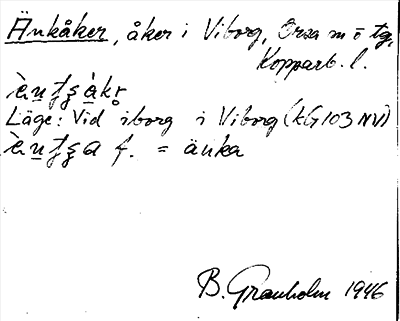 Änkåker, åker i Viborg, Orsa m ö tg,
Kopparb. l.
Läge: Vid iborg i Viborg (kG103 NV)
f. = änka
B. Granholm 1946